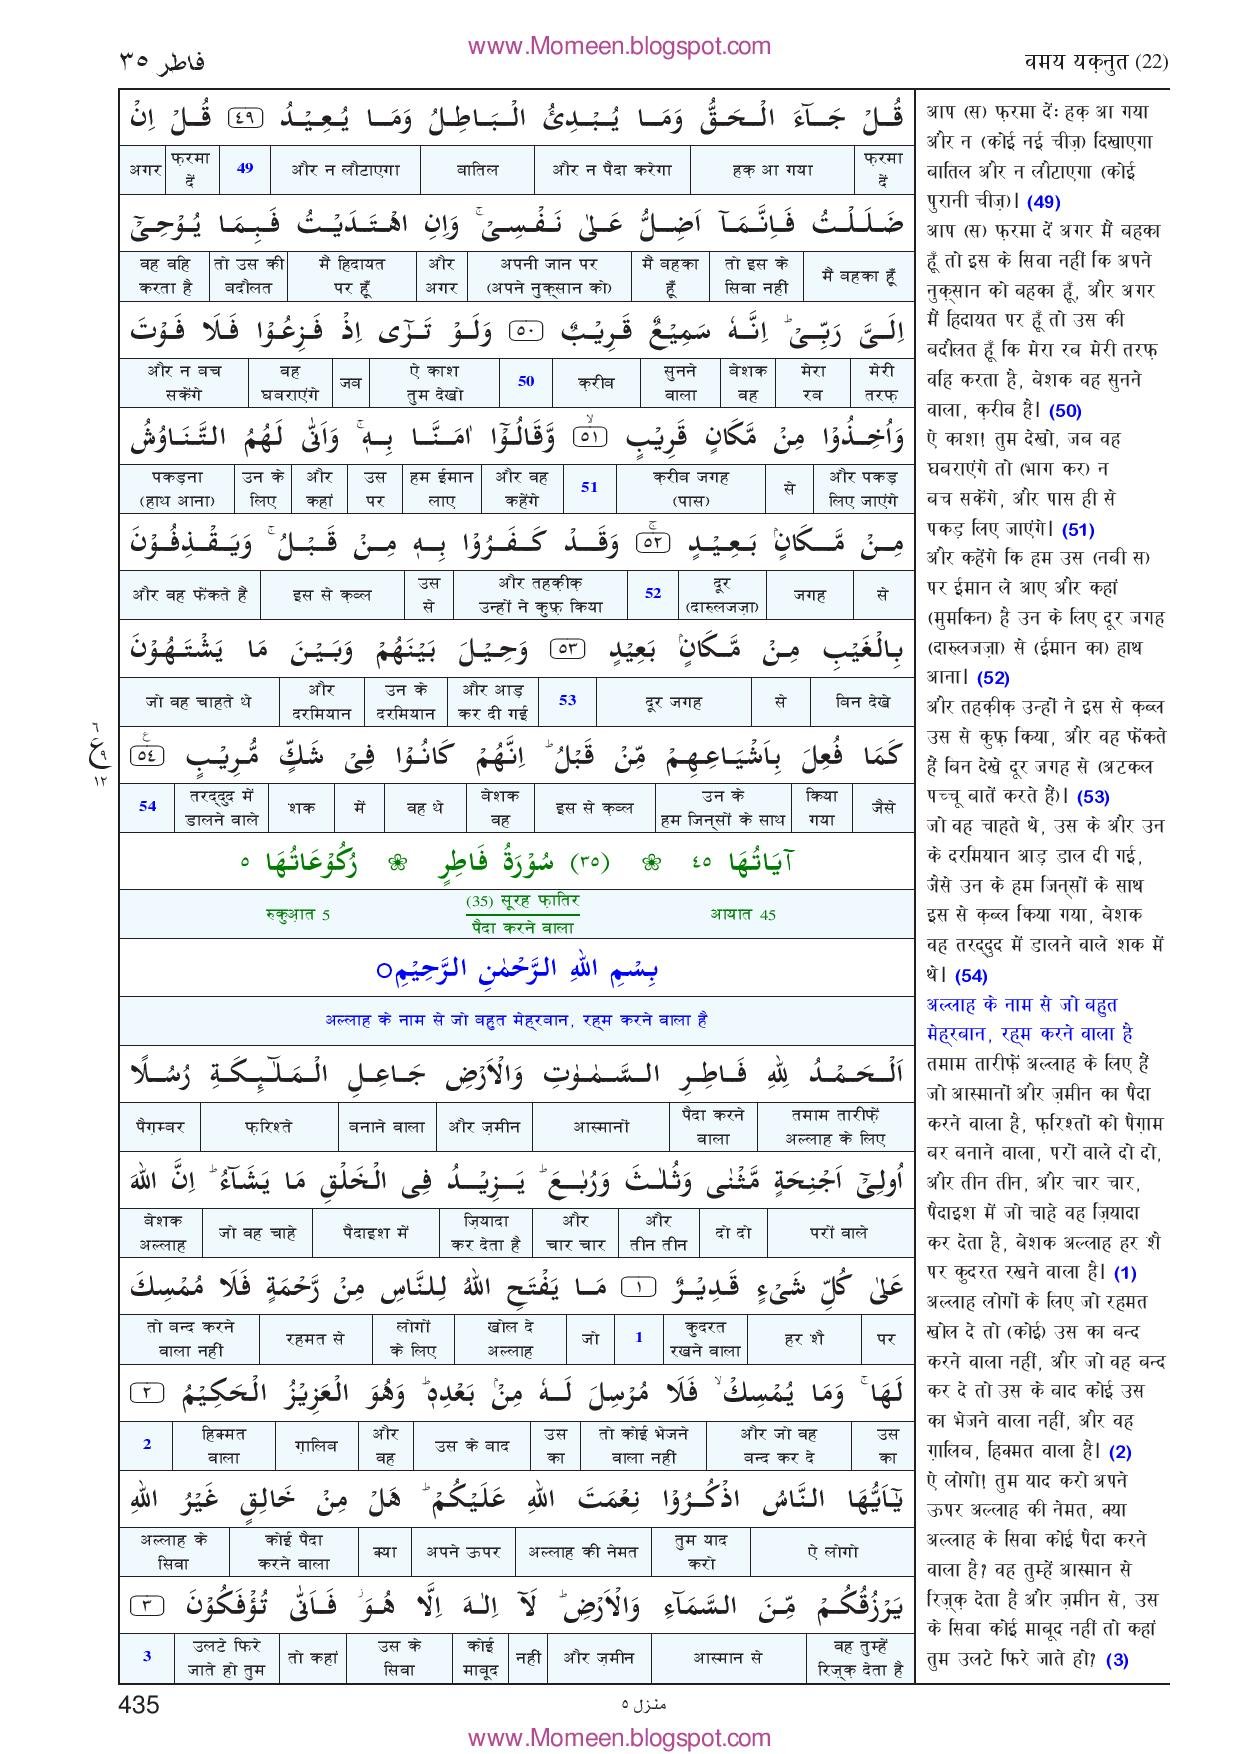 www.Momeen.blogspot.com
فاطر ۳۵
वमय यक़्नुत (22)
قُلْ جَآءَ الْحَقُّ وَمَا يُبْدِئُ الْبَاطِلُ وَمَا يُعِيْدُ ﴿٤٩﴾ قُلْ اِنْ
फ़रमा दें | हक़ आ गया | और न पैदा करेगा | बातिल | और न लौटाएगा | 49 | फ़रमा दें | अगर
ضَلَلْتُ فَاِنَّمَآ اَضِلُّ عَلٰى نَفْسِيْ ۚ وَاِنِ اهْتَدَيْتُ فَبِمَا يُوْحِيْٓ
मैं बहका हूँ | तो इस के सिवा नहीं | मैं बहका हूँ | अपनी जान पर (अपने नुक़्सान को) | और अगर | मैं हिदायत पर हूँ | तो उस की बदौलत | वह वहि करता है
اِلَيَّ رَبِّيْ ۭ اِنَّهٗ سَمِيْعٌ قَرِيْبٌ ﴿٥٠﴾ وَلَوْ تَرٰٓى اِذْ فَزِعُوْا فَلَا فَوْتَ
मेरी तरफ़ | मेरा रब | बेशक वह | सुनने वाला | क़रीब | 50 | ऐ काश तुम देखो | जब | वह घबराएंगे | और न बच सकेंगे
وَاُخِذُوْا مِنْ مَّكَانٍ قَرِيْبٍ ﴿٥١﴾ وَّقَالُوْٓا اٰمَنَّا بِهٖ ۚ وَاَنّٰى لَهُمُ التَّنَاوُشُ
और पकड़ लिए जाएंगे | से | क़रीब जगह (पास) | 51 | और वह कहेंगे | हम ईमान लाए | उस पर | और कहां | उन के लिए | पकड़ना (हाथ आना)
مِنْ مَّكَانٍۢ بَعِيْدٍ ﴿٥٢﴾ وَقَدْ كَفَرُوْا بِهٖ مِنْ قَبْلُ ۚ وَيَقْذِفُوْنَ
से | जगह | दूर (दारुलजज़ा) | 52 | और तहक़ीक़ उन्हों ने कुफ़ किया | उस से | इस से क़ब्ल | और वह फेंकते हैं
بِالْغَيْبِ مِنْ مَّكَانٍۢ بَعِيْدٍ ﴿٥٣﴾ وَحِيْلَ بَيْنَهُمْ وَبَيْنَ مَا يَشْتَهُوْنَ
बिन देखे | से | दूर जगह | 53 | और आड़ कर दी गई | उन के दरमियान | और दरमियान | जो वह चाहते थे
كَمَا فُعِلَ بِاَشْيَاعِهِمْ مِّنْ قَبْلُ ۭ اِنَّهُمْ كَانُوْا فِيْ شَكٍّ مُّرِيْبٍ ﴿٥٤﴾
٦ ع ٩ ١٢
जैसे | किया गया | उन के हम जिन्सों के साथ | इस से क़ब्ल | बेशक वह | वह थे | में | शक | तरद्दुद में डालने वाले | 54
آيَاتُهَا ٤٥ ❀ (٣٥) سُوْرَةُ فَاطِرٍ ❀ رُكُوْعَاتُهَا ٥
आयात 45 | (35) सूरह फ़ातिर पैदा करने वाला | रुकुआ़त 5
بِسْمِ اللهِ الرَّحْمٰنِ الرَّحِيْمِ○
अल्लाह के नाम से जो बहुत मेह्रबान, रह्म करने वाला है
اَلْحَمْدُ لِلّٰهِ فَاطِرِ السَّمٰوٰتِ وَالْاَرْضِ جَاعِلِ الْمَلٰٓئِكَةِ رُسُلًا
तमाम तारीफ़ें अल्लाह के लिए | पैदा करने वाला | आस्मानों | और ज़मीन | बनाने वाला | फ़रिश्ते | पैग़म्बर
اُولِيْٓ اَجْنِحَةٍ مَّثْنٰى وَثُلٰثَ وَرُبٰعَ ۭ يَزِيْدُ فِي الْخَلْقِ مَا يَشَآءُ ۭ اِنَّ اللهَ
परों वाले | दो दो | और तीन तीन | और चार चार | ज़ियादा कर देता है | पैदाइश में | जो वह चाहे | बेशक अल्लाह
عَلٰى كُلِّ شَيْءٍ قَدِيْرٌ ﴿١﴾ مَا يَفْتَحِ اللهُ لِلنَّاسِ مِنْ رَّحْمَةٍ فَلَا مُمْسِكَ
पर | हर शै | कुदरत रखने वाला | 1 | जो | खोल दे अल्लाह | लोगों के लिए | रहमत से | तो बन्द करने वाला नहीं
لَهَا ۚ وَمَا يُمْسِكْ ۙ فَلَا مُرْسِلَ لَهٗ مِنْۢ بَعْدِهٖ ۭ وَهُوَ الْعَزِيْزُ الْحَكِيْمُ ﴿٢﴾
उस का | और जो वह बन्द कर दे | तो कोई भेजने वाला नहीं | उस का | उस के बाद | और वह | ग़ालिब | हिक्मत वाला | 2
يٰٓاَيُّهَا النَّاسُ اذْكُرُوْا نِعْمَتَ اللهِ عَلَيْكُمْ ۭ هَلْ مِنْ خَالِقٍ غَيْرُ اللهِ
ऐ लोगो | तुम याद करो | अल्लाह की नेमत | अपने ऊपर | क्या | कोई पैदा करने वाला | अल्लाह के सिवा
يَرْزُقُكُمْ مِّنَ السَّمَآءِ وَالْاَرْضِ ۭ لَآ اِلٰهَ اِلَّا هُوَ ۖ فَاَنّٰى تُؤْفَكُوْنَ ﴿٣﴾
वह तुम्हें रिज़्क़ देता है | आस्मान से | और ज़मीन | नहीं | कोई माबूद | उस के सिवा | तो कहां | उलटे फिरे जाते हो तुम | 3
आप (स) फ़रमा देंः हक़ आ गया
और न (कोई नई चीज़) दिखाएगा
बातिल और न लौटाएगा (कोई
पुरानी चीज़)। (49)
आप (स) फ़रमा दें अगर मैं बहका
हूँ तो इस के सिवा नहीं कि अपने
नुक़्सान को बहका हूँ, और अगर
मैं हिदायत पर हूँ तो उस की
बदौलत हूँ कि मेरा रब मेरी तरफ़
वहि करता है, बेशक वह सुनने
वाला, क़रीब है। (50)
ऐ काश! तुम देखो, जब वह
घबराएंगे तो (भाग कर) न
बच सकेंगे, और पास ही से
पकड़ लिए जाएंगे। (51)
और कहेंगे कि हम उस (नबी स)
पर ईमान ले आए और कहां
(मुमकिन) है उन के लिए दूर जगह
(दारुलजज़ा) से (ईमान का) हाथ
आना। (52)
और तहक़ीक़ उन्हों ने इस से क़ब्ल
उस से कुफ़ किया, और वह फेंकते
हैं बिन देखे दूर जगह से (अटकल
पच्चू बातें करते हैं)। (53)
जो वह चाहते थे, उस के और उन
के दरमियान आड़ डाल दी गई,
जैसे उन के हम जिन्सों के साथ
इस से क़ब्ल किया गया, बेशक
वह तरद्दुद में डालने वाले शक में
थे। (54)
अल्लाह के नाम से जो बहुत
मेह्रबान, रह्म करने वाला है
तमाम तारीफ़ें अल्लाह के लिए हैं
जो आस्मानों और ज़मीन का पैदा
करने वाला है, फ़रिश्तों को पैग़ाम
बर बनाने वाला, परों वाले दो दो,
और तीन तीन, और चार चार,
पैदाइश में जो चाहे वह ज़ियादा
कर देता है, बेशक अल्लाह हर शै
पर कुदरत रखने वाला है। (1)
अल्लाह लोगों के लिए जो रहमत
खोल दे तो (कोई) उस का बन्द
करने वाला नहीं, और जो वह बन्द
कर दे तो उस के बाद कोई उस
का भेजने वाला नहीं, और वह
ग़ालिब, हिक्मत वाला है। (2)
ऐ लोगो! तुम याद करो अपने
ऊपर अल्लाह की नेमत, क्या
अल्लाह के सिवा कोई पैदा करने
वाला है? वह तुम्हें आस्मान से
रिज़्क़ देता है और ज़मीन से, उस
के सिवा कोई माबूद नहीं तो कहां
तुम उलटे फिरे जाते हो? (3)
435
منزل ٥
www.Momeen.blogspot.com